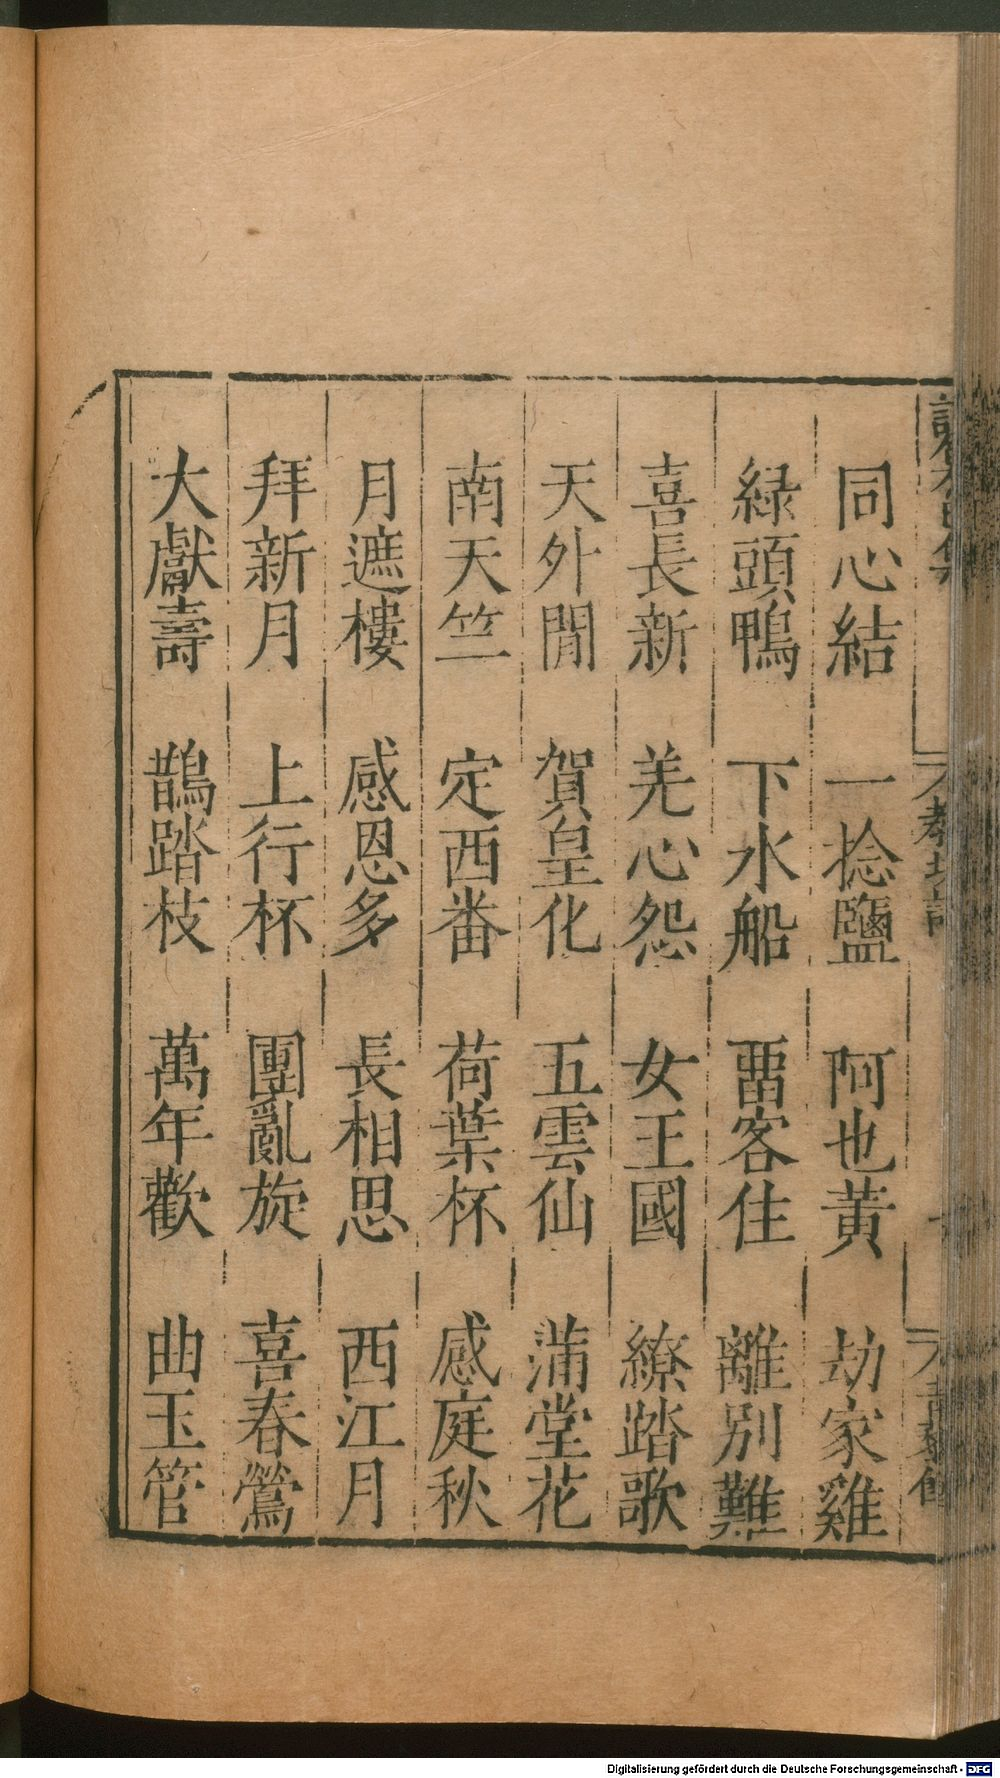 同心結 一捻鹽 阿也黃 劫家雞
綠頭鴨 下水船 畱客住 離別難
喜長新 羌心怨 女王國 繚踏歌
天外閒 賀皇化 五雲仙 蒲堂花
南天竺 定西番 荷葉杯 感庭秋
月遮樓 感恩多 長相思 西江月
拜新月 上行杯 團亂旋 喜春鶯
大獻壽 鵲踏枝 萬年歡 曲玉管
Digitalisierung gefördert durch die Deutsche Forschungsgemeinschaft - DFG